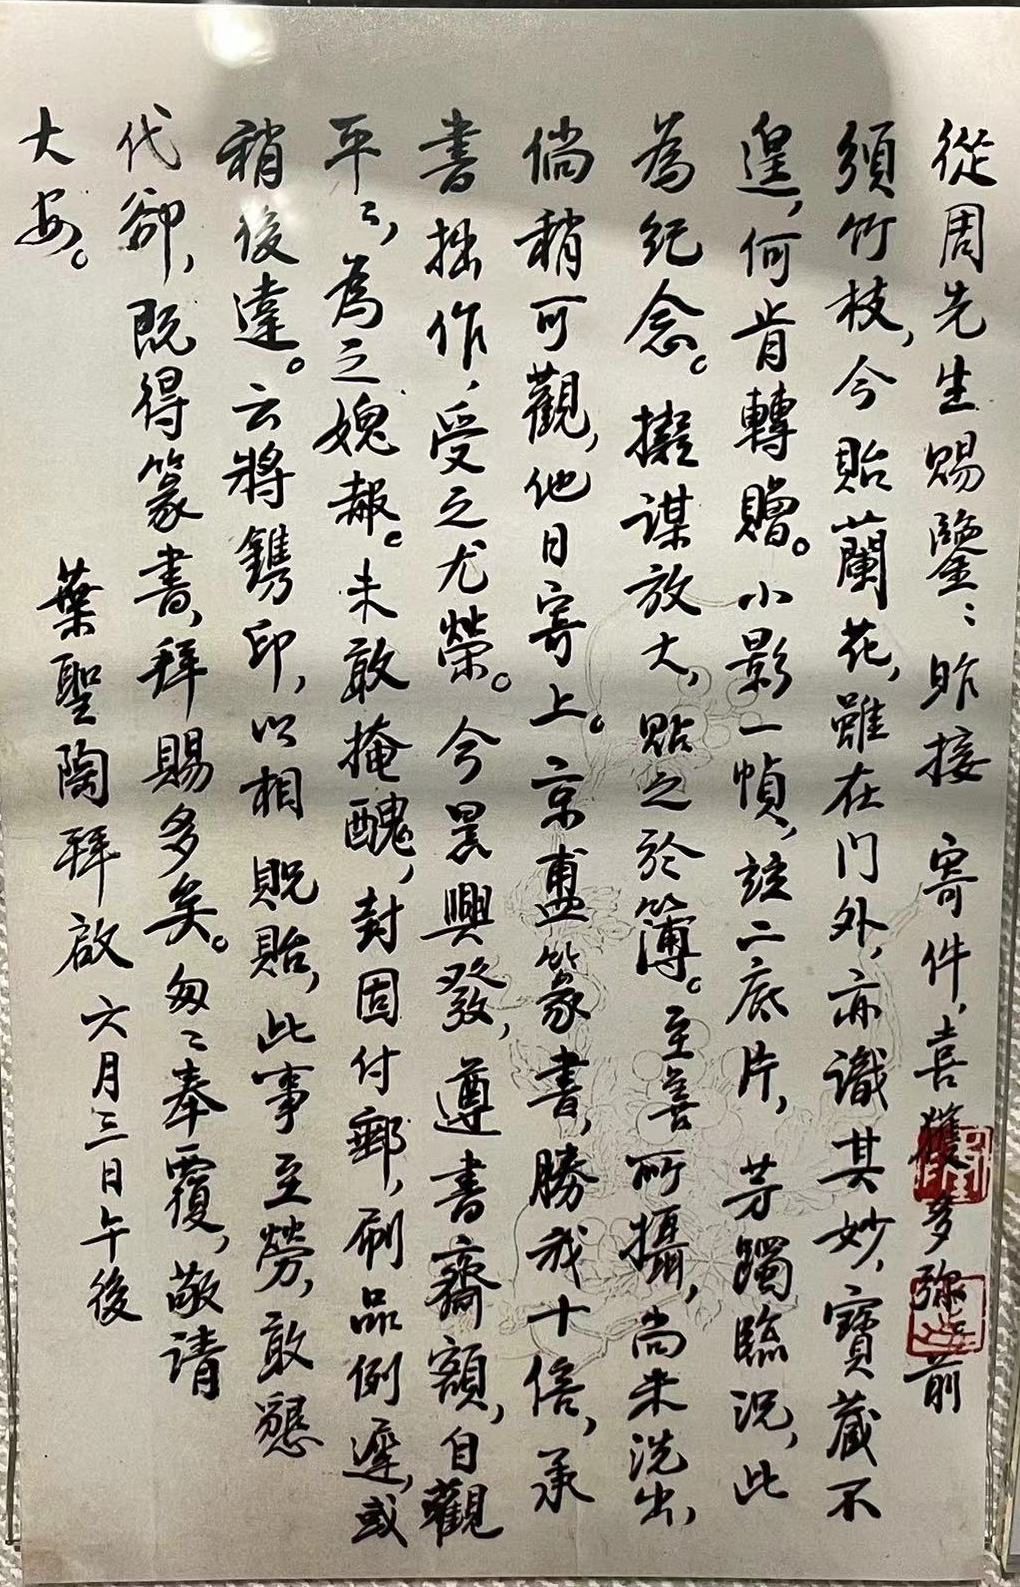 從周先生賜鑒：昨接　寄件，喜獲多珎。前
須竹枝，今貽蘭花，雖在门外，亦識其妙，寶藏不
遑，何肯轉贈。小影一幀，註二底片，芳躅臨況，此
為紀念。擬謀放大，貼之於簿。至善所攝，尚未洗出，
倘稍可觀，他日寄上。京盙篆書，勝我十倍，承
書拙作，受之尤榮。今晨興發，遵書齋額，自觀
平平，為之媿赧。未敢掩醜，封固付郵，刷品例遲，或
稍後達。云將鐫印，以相貺貽，此事至勞，敢懇
代卻，既得篆書，拜賜多矣。匆匆奉覆，敬请
大安。
葉聖陶拜啟　六月三日午後